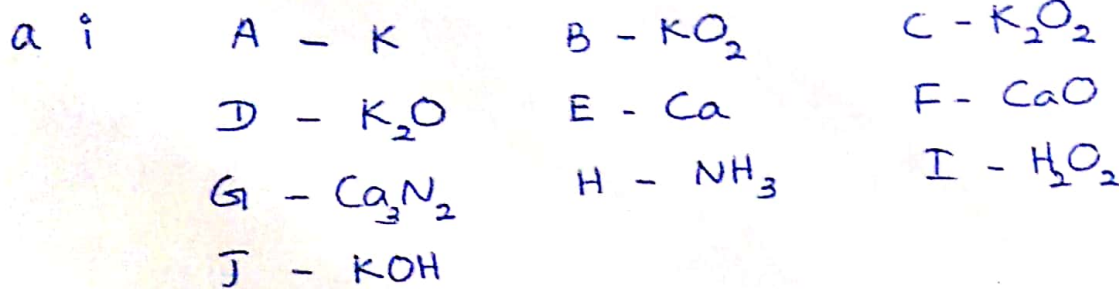 a i A - K B - KO₂ C - K₂O₂
D - K₂O E - Ca F - CaO
G - Ca₃N₂ H - NH₃ I - H₂O₂
J - KOH